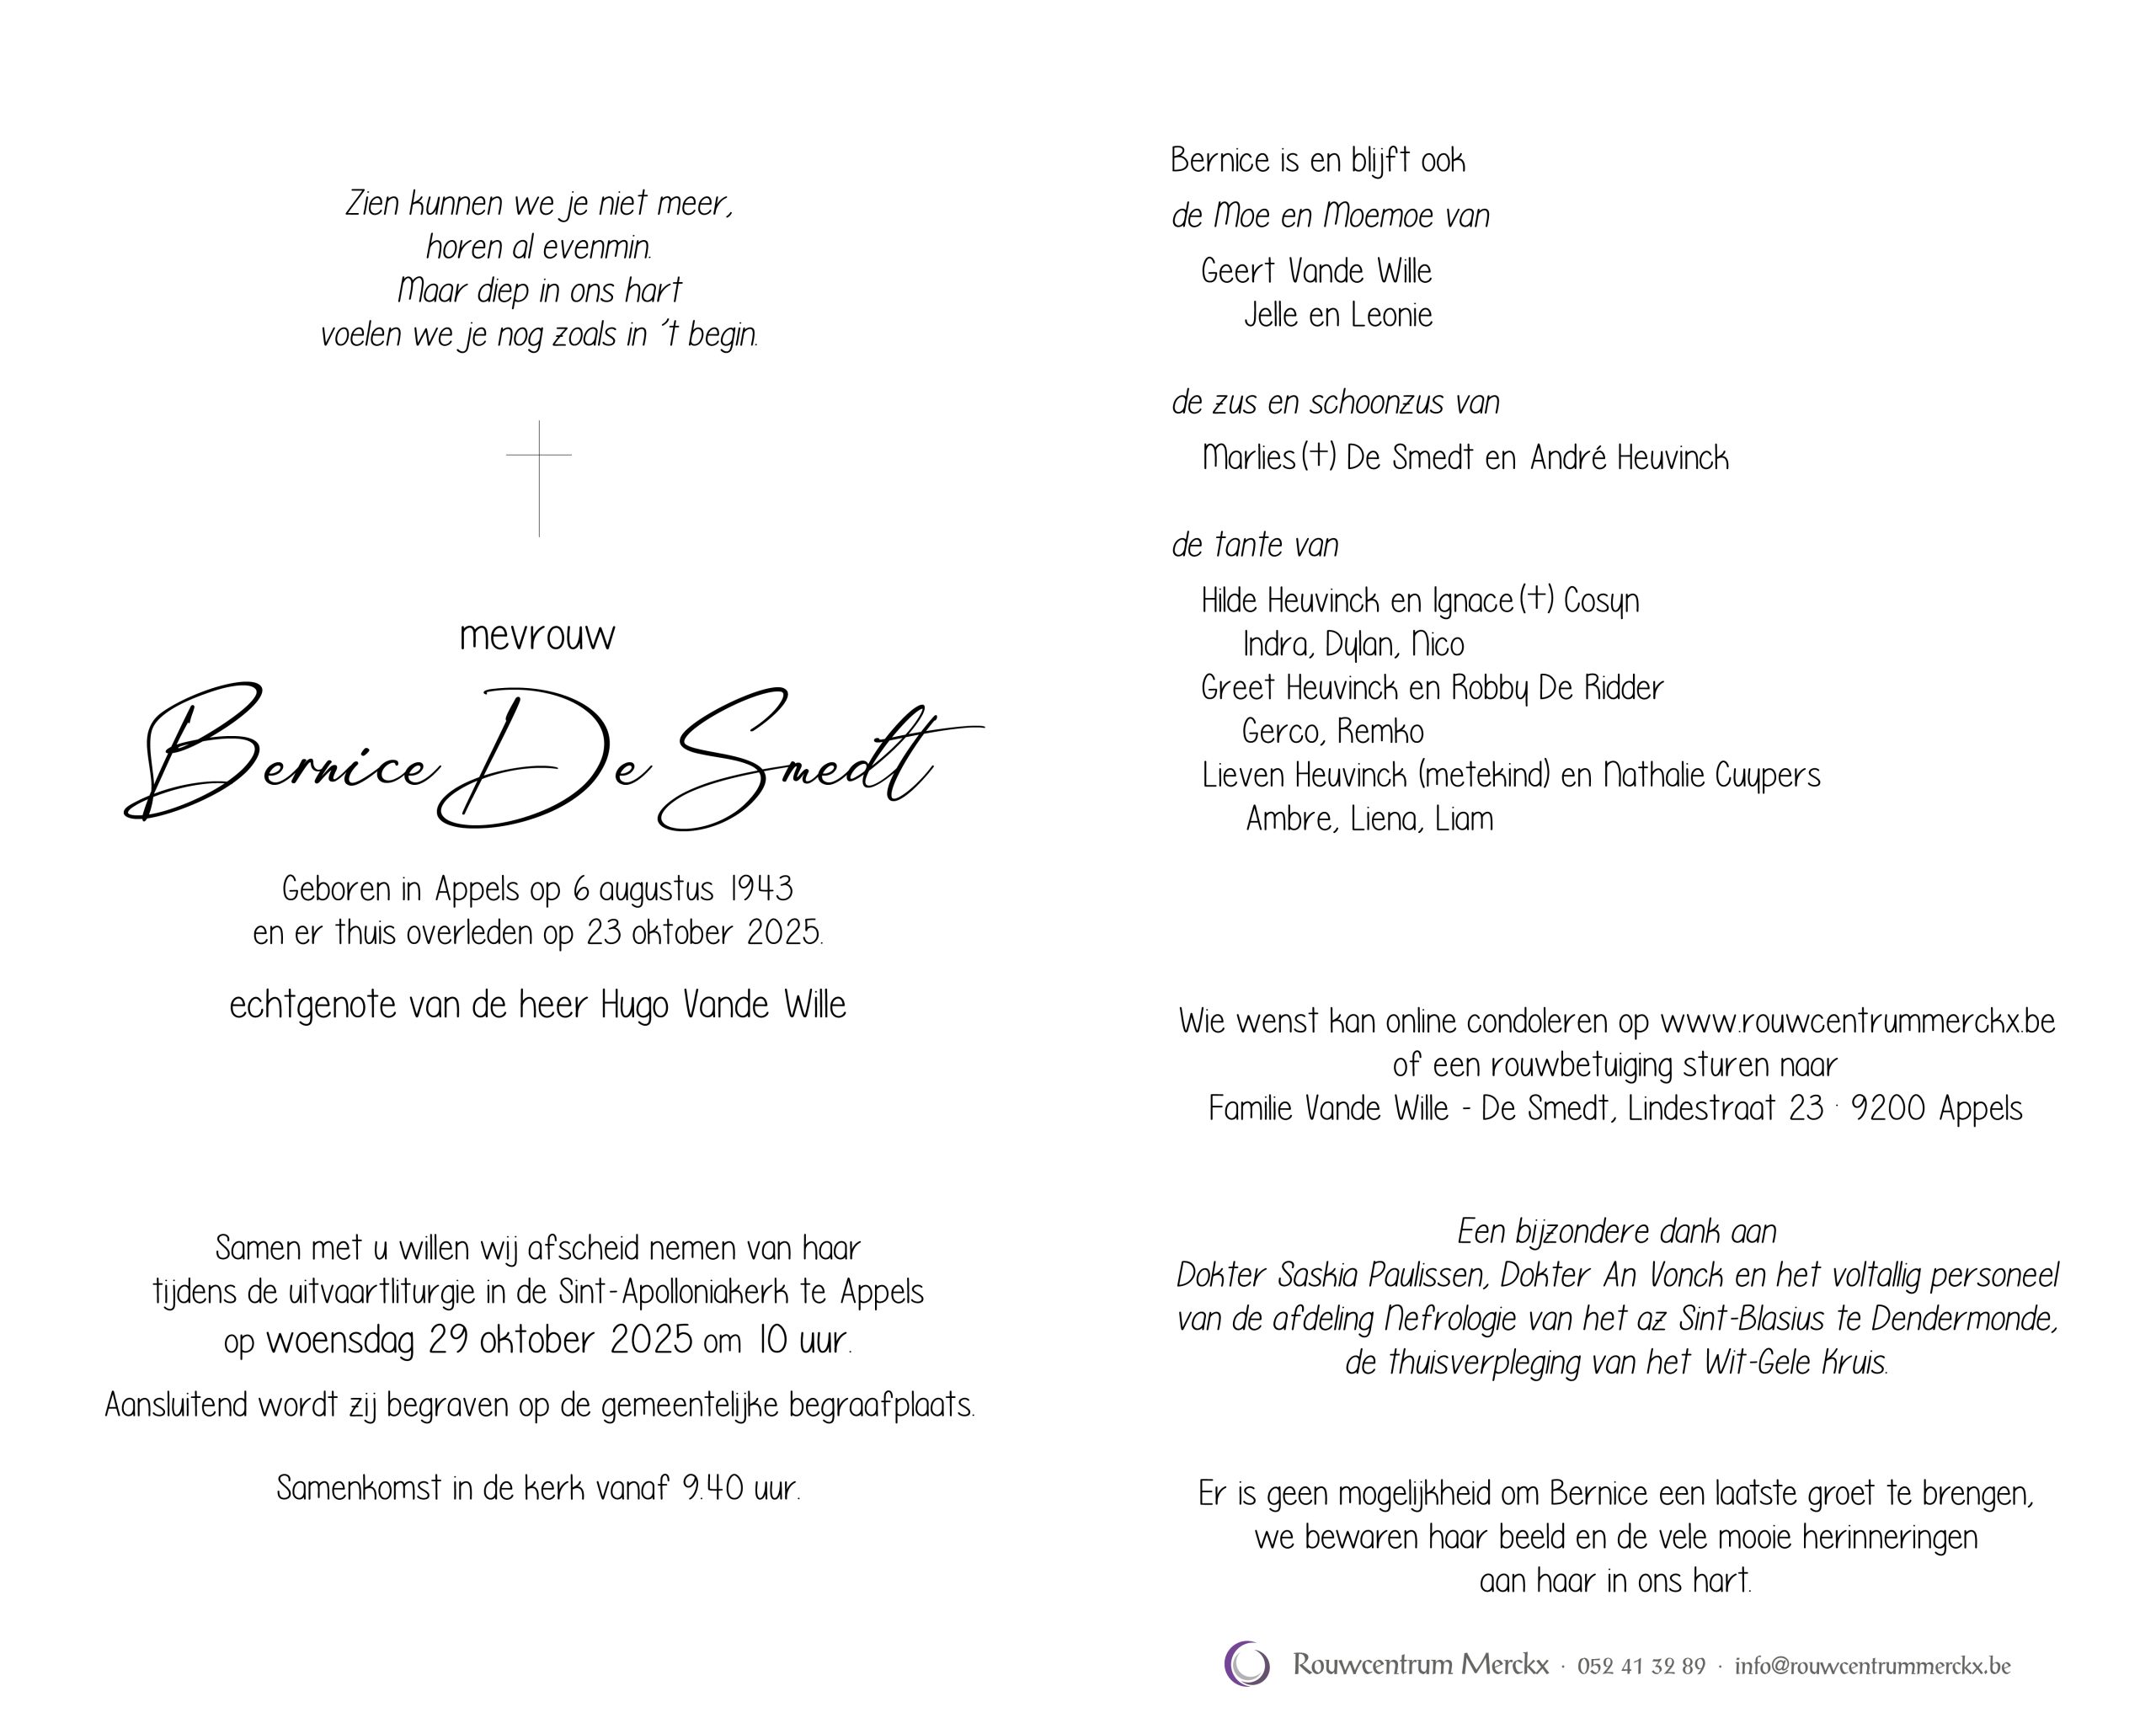 Zien kunnen we je niet meer,
horen al evenmin.
Maar diep in ons hart
voelen we je nog zoals in 't begin.
mevrouw
Bernice De Smedt
Geboren in Appels op 6 augustus 1943
en er thuis overleden op 23 oktober 2025.
echtgenote van de heer Hugo Vande Wille
Samen met u willen wij afscheid nemen van haar
tijdens de uitvaartliturgie in de Sint-Apolloniakerk te Appels
op woensdag 29 oktober 2025 om 10 uur.
Aansluitend wordt zij begraven op de gemeentelijke begraafplaats.
Samenkomst in de kerk vanaf 9.40 uur.
Bernice is en blijft ook
de Moe en Moemoe van
Geert Vande Wille
Jelle en Leonie
de zus en schoonzus van
Marlies (†) De Smedt en André Heuvinck
de tante van
Hilde Heuvinck en Ignace (†) Cosyn
Indra, Dylan, Nico
Greet Heuvinck en Robby De Ridder
Gerco, Remko
Lieven Heuvinck (metekind) en Nathalie Cuypers
Ambre, Liena, Liam
Wie wenst kan online condoleren op www.rouwcentrummerckx.be
of een rouwbetuiging sturen naar
Familie Vande Wille - De Smedt, Lindestraat 23 · 9200 Appels
Een bijzondere dank aan
Dokter Saskia Paulissen, Dokter An Vonck en het voltallig personeel
van de afdeling Nefrologie van het az Sint-Blasius te Dendermonde,
de thuisverpleging van het Wit-Gele Kruis.
Er is geen mogelijkheid om Bernice een laatste groet te brengen,
we bewaren haar beeld en de vele mooie herinneringen
aan haar in ons hart.
Rouwcentrum Merckx · 052 41 32 89 · info@rouwcentrummerckx.be